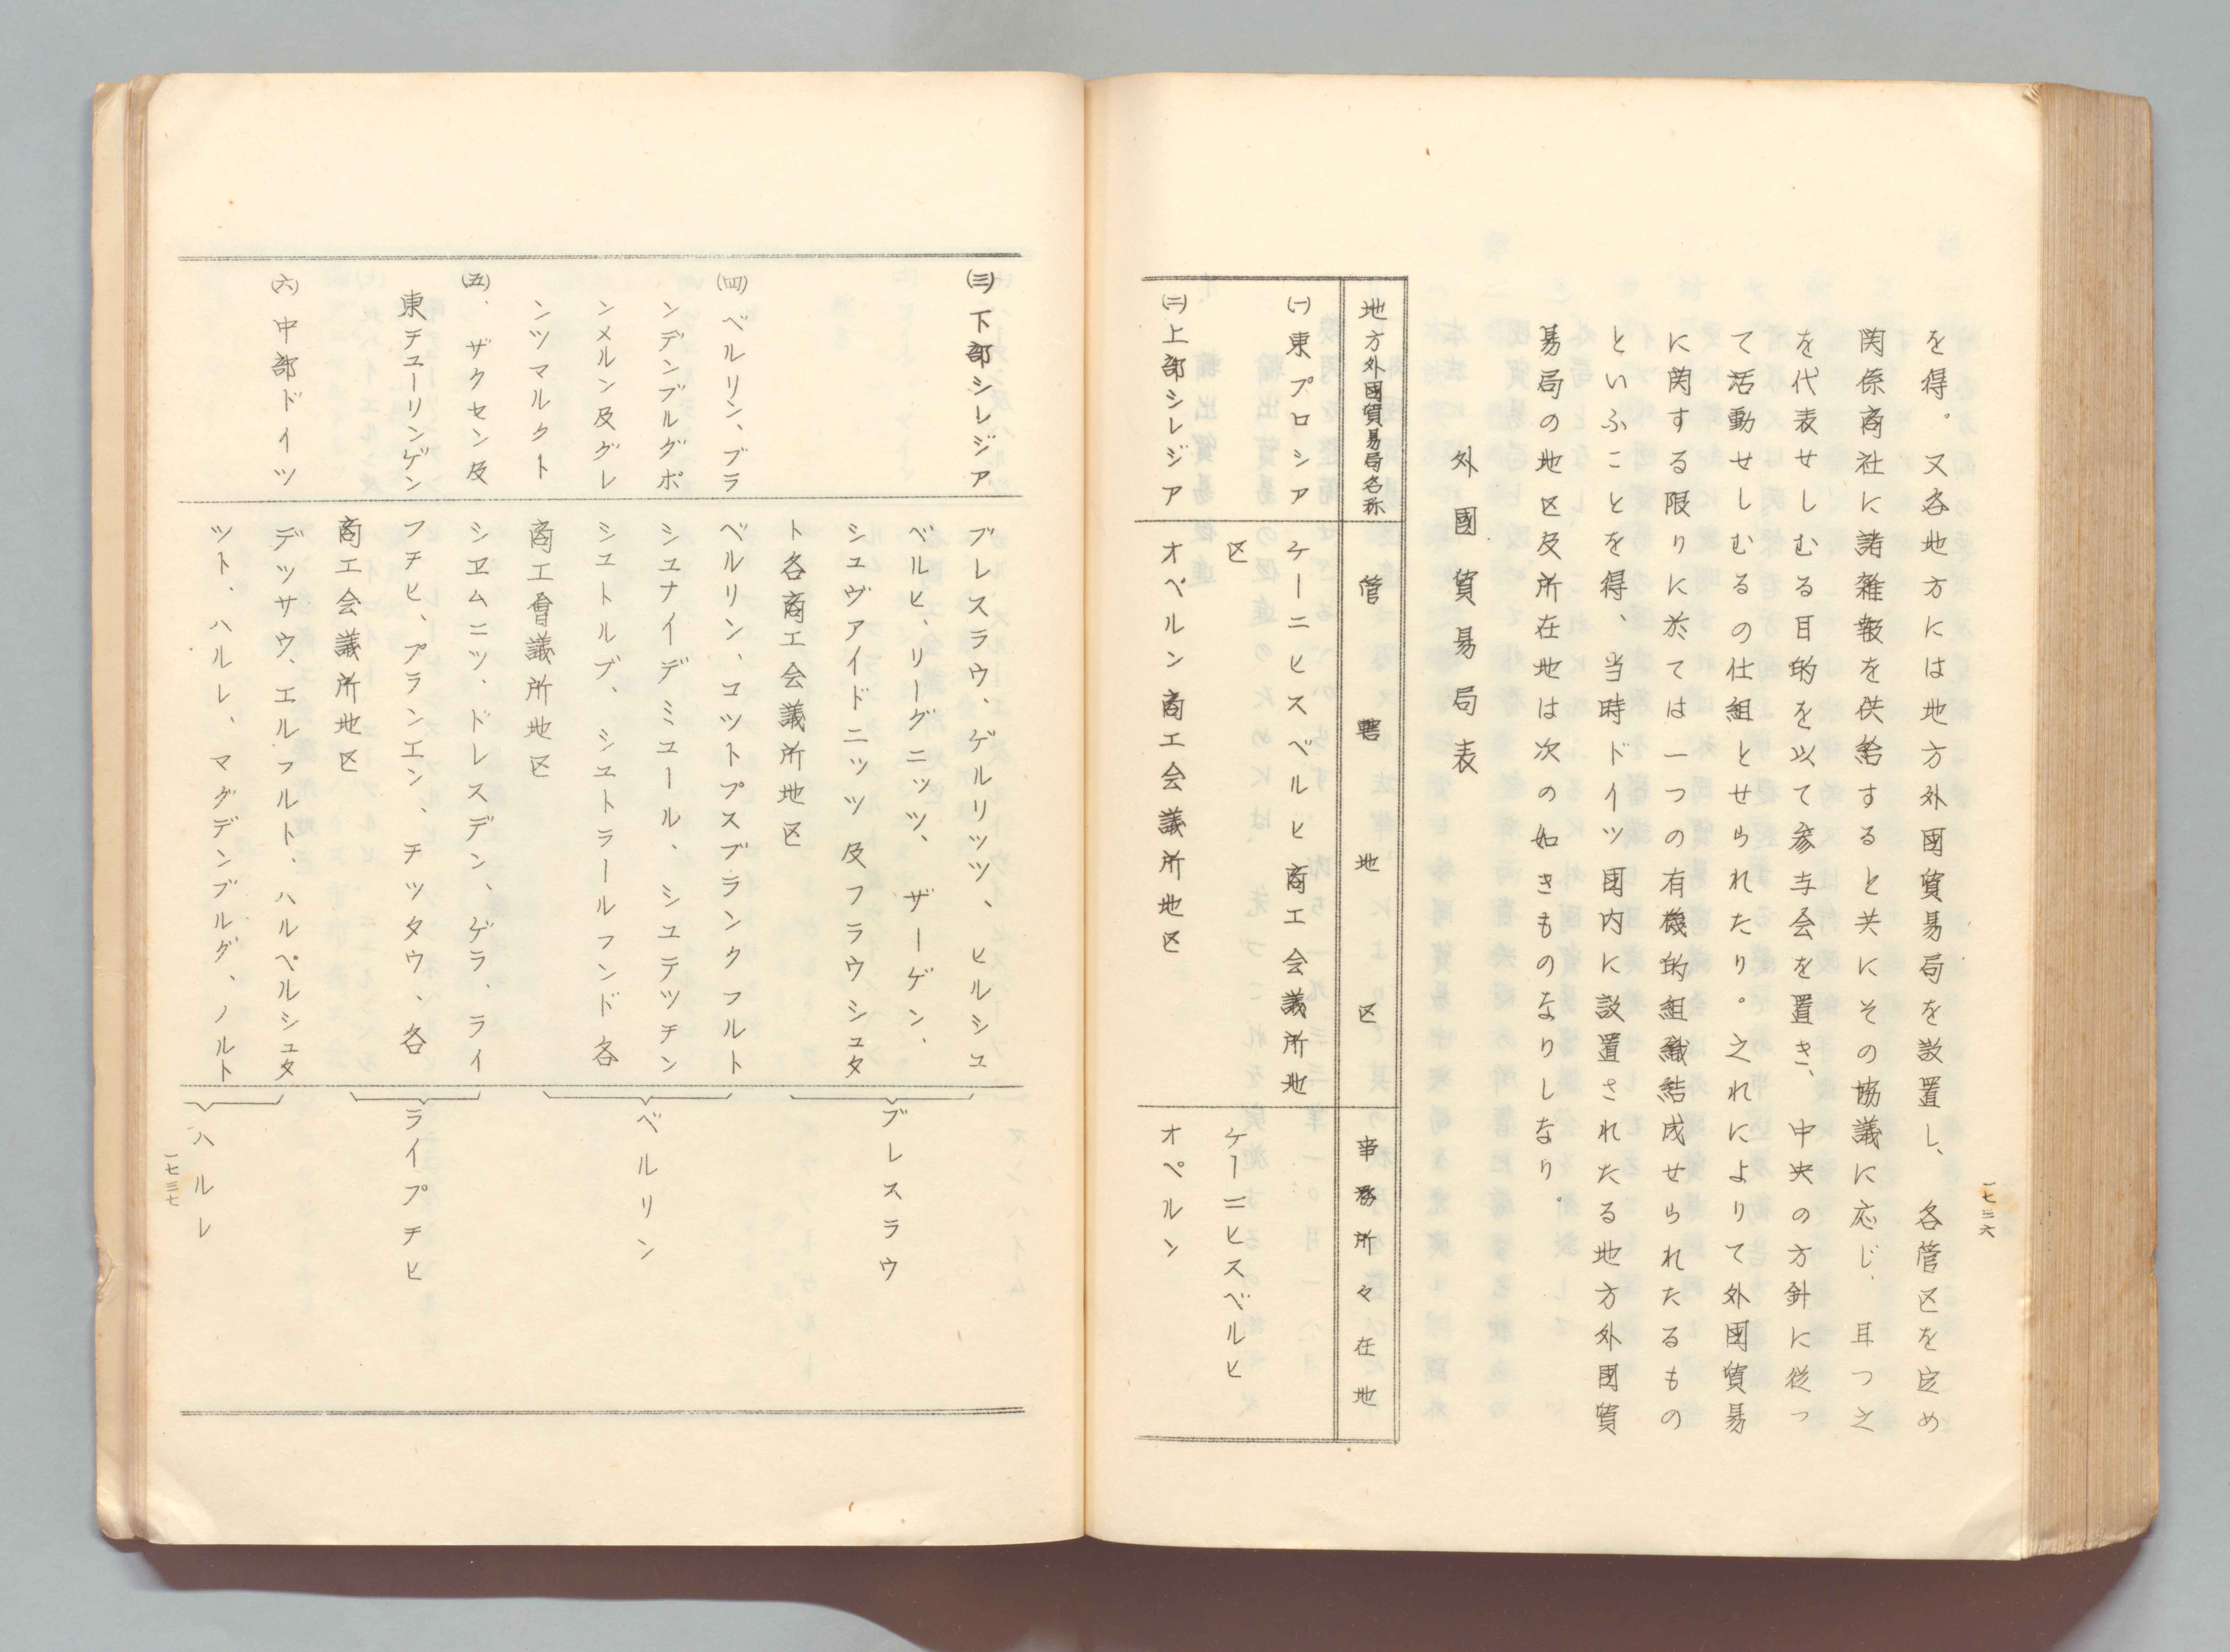 を得。又各地方には地方外國貿易局を設置し、各管区を定め
関係商社に諸雑報を供給すると共にその協議に応じ、且つ之
を代表せしむる目的を以て参与会を置き、中央の方針に従つ
て活動せしむるの仕組とせられたり。之れによりて外國貿易
に関する限りに於ては一つの有機的組織結成せられたるもの
といふことを得、当時ドイツ國内に設置されたる地方外國貿
易局の地区及所在地は次の如きものなりしなり。
外國貿易局表
地方外國貿易局名称
管轄地区
事務所々在地
(一)東プロシア
ケーニヒスベルヒ商工会議所地
区
ケーニヒスベルヒ
(二)上部シレジア
オペルン商工会議所地区
オペルン
一七三六
(三)下部シレジア
ブレスラウ、ゲルリッツ、ヒルシュ
ベルヒ、リーグニッツ、ザーゲン、
シュヴァイドニッツ及フラウシュタ
ト各商工会議所地区
ブレスラウ
(四)ベルリン、ブラ
ンデンブルグポ
ンメルン及グレ
ンツマルクト
ベルリン、コットブスブランクフルト
シュナイデミュール、シュテッチン
シュトルプ、シュトラールフンド各
商工會議所地区
ベルリン
(五)、ザクセン及
東チューリンゲン
シエムニッツ、ドレスデン、ゲラ、ライ
フチヒ、プランエン、チッタウ、各
商工会議所地区
ライプチヒ
(六)中部ドイツ
デッサウ、エルフルト、ハルベルシュタ
ット、ハルレ、マグデンブルグ、ノルト
ハルレ
一七三七